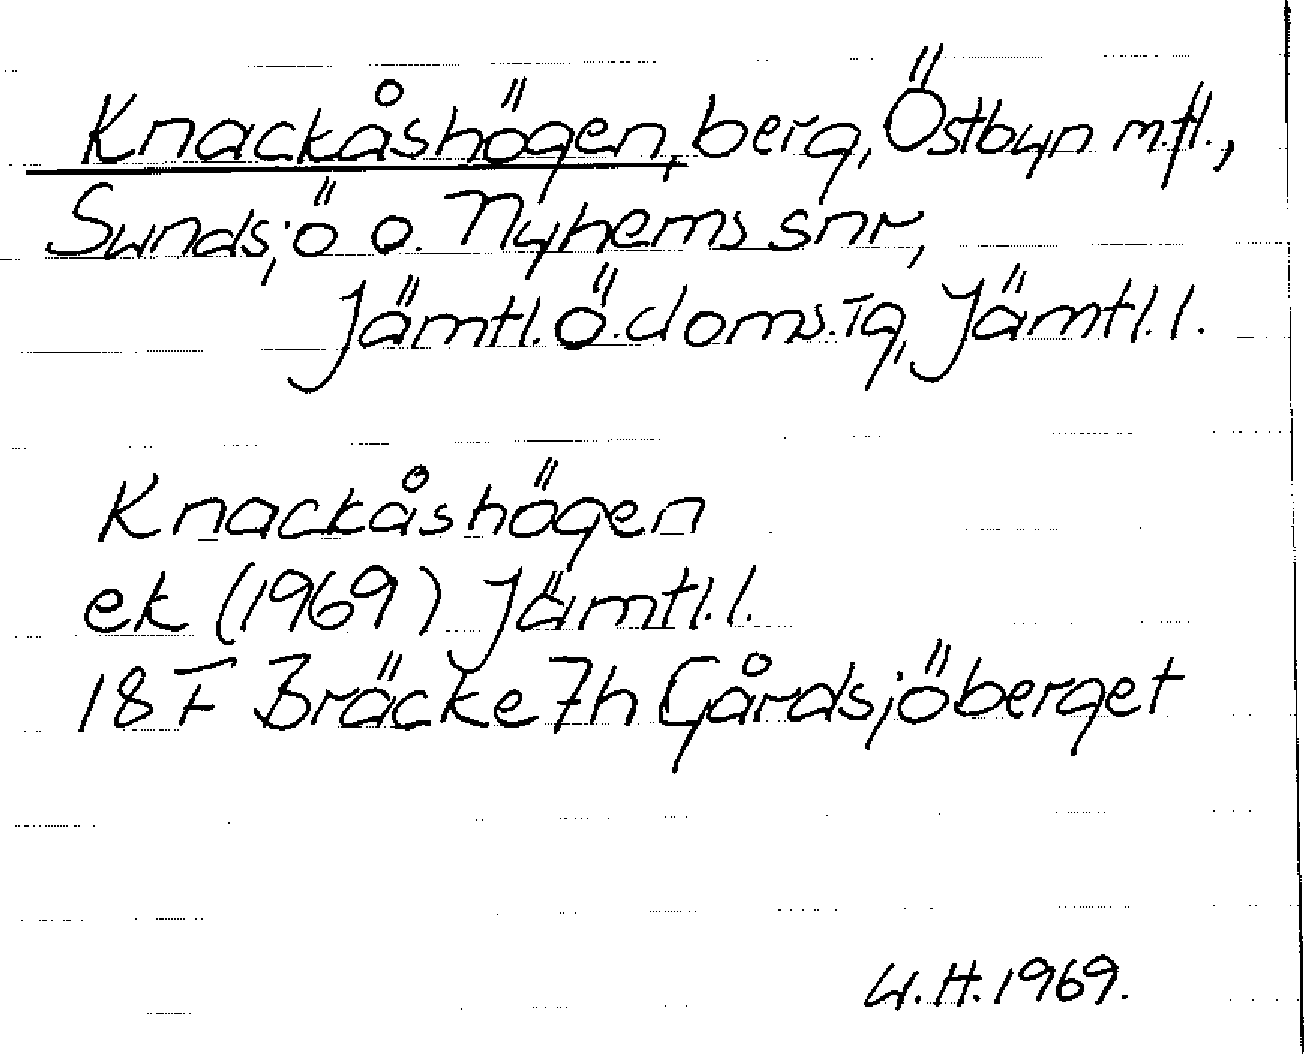 Knackåshögen, berg, Östbyn m.fl.,
Sundsjö o. Nyhems snr,
Jämtl.ö.doms.Tg, Jämtl.l.
Knackåshögen
ek (1969) Jämtl.l.
18F Bräcke 7h Gårdsjöberget
W.H.1969.